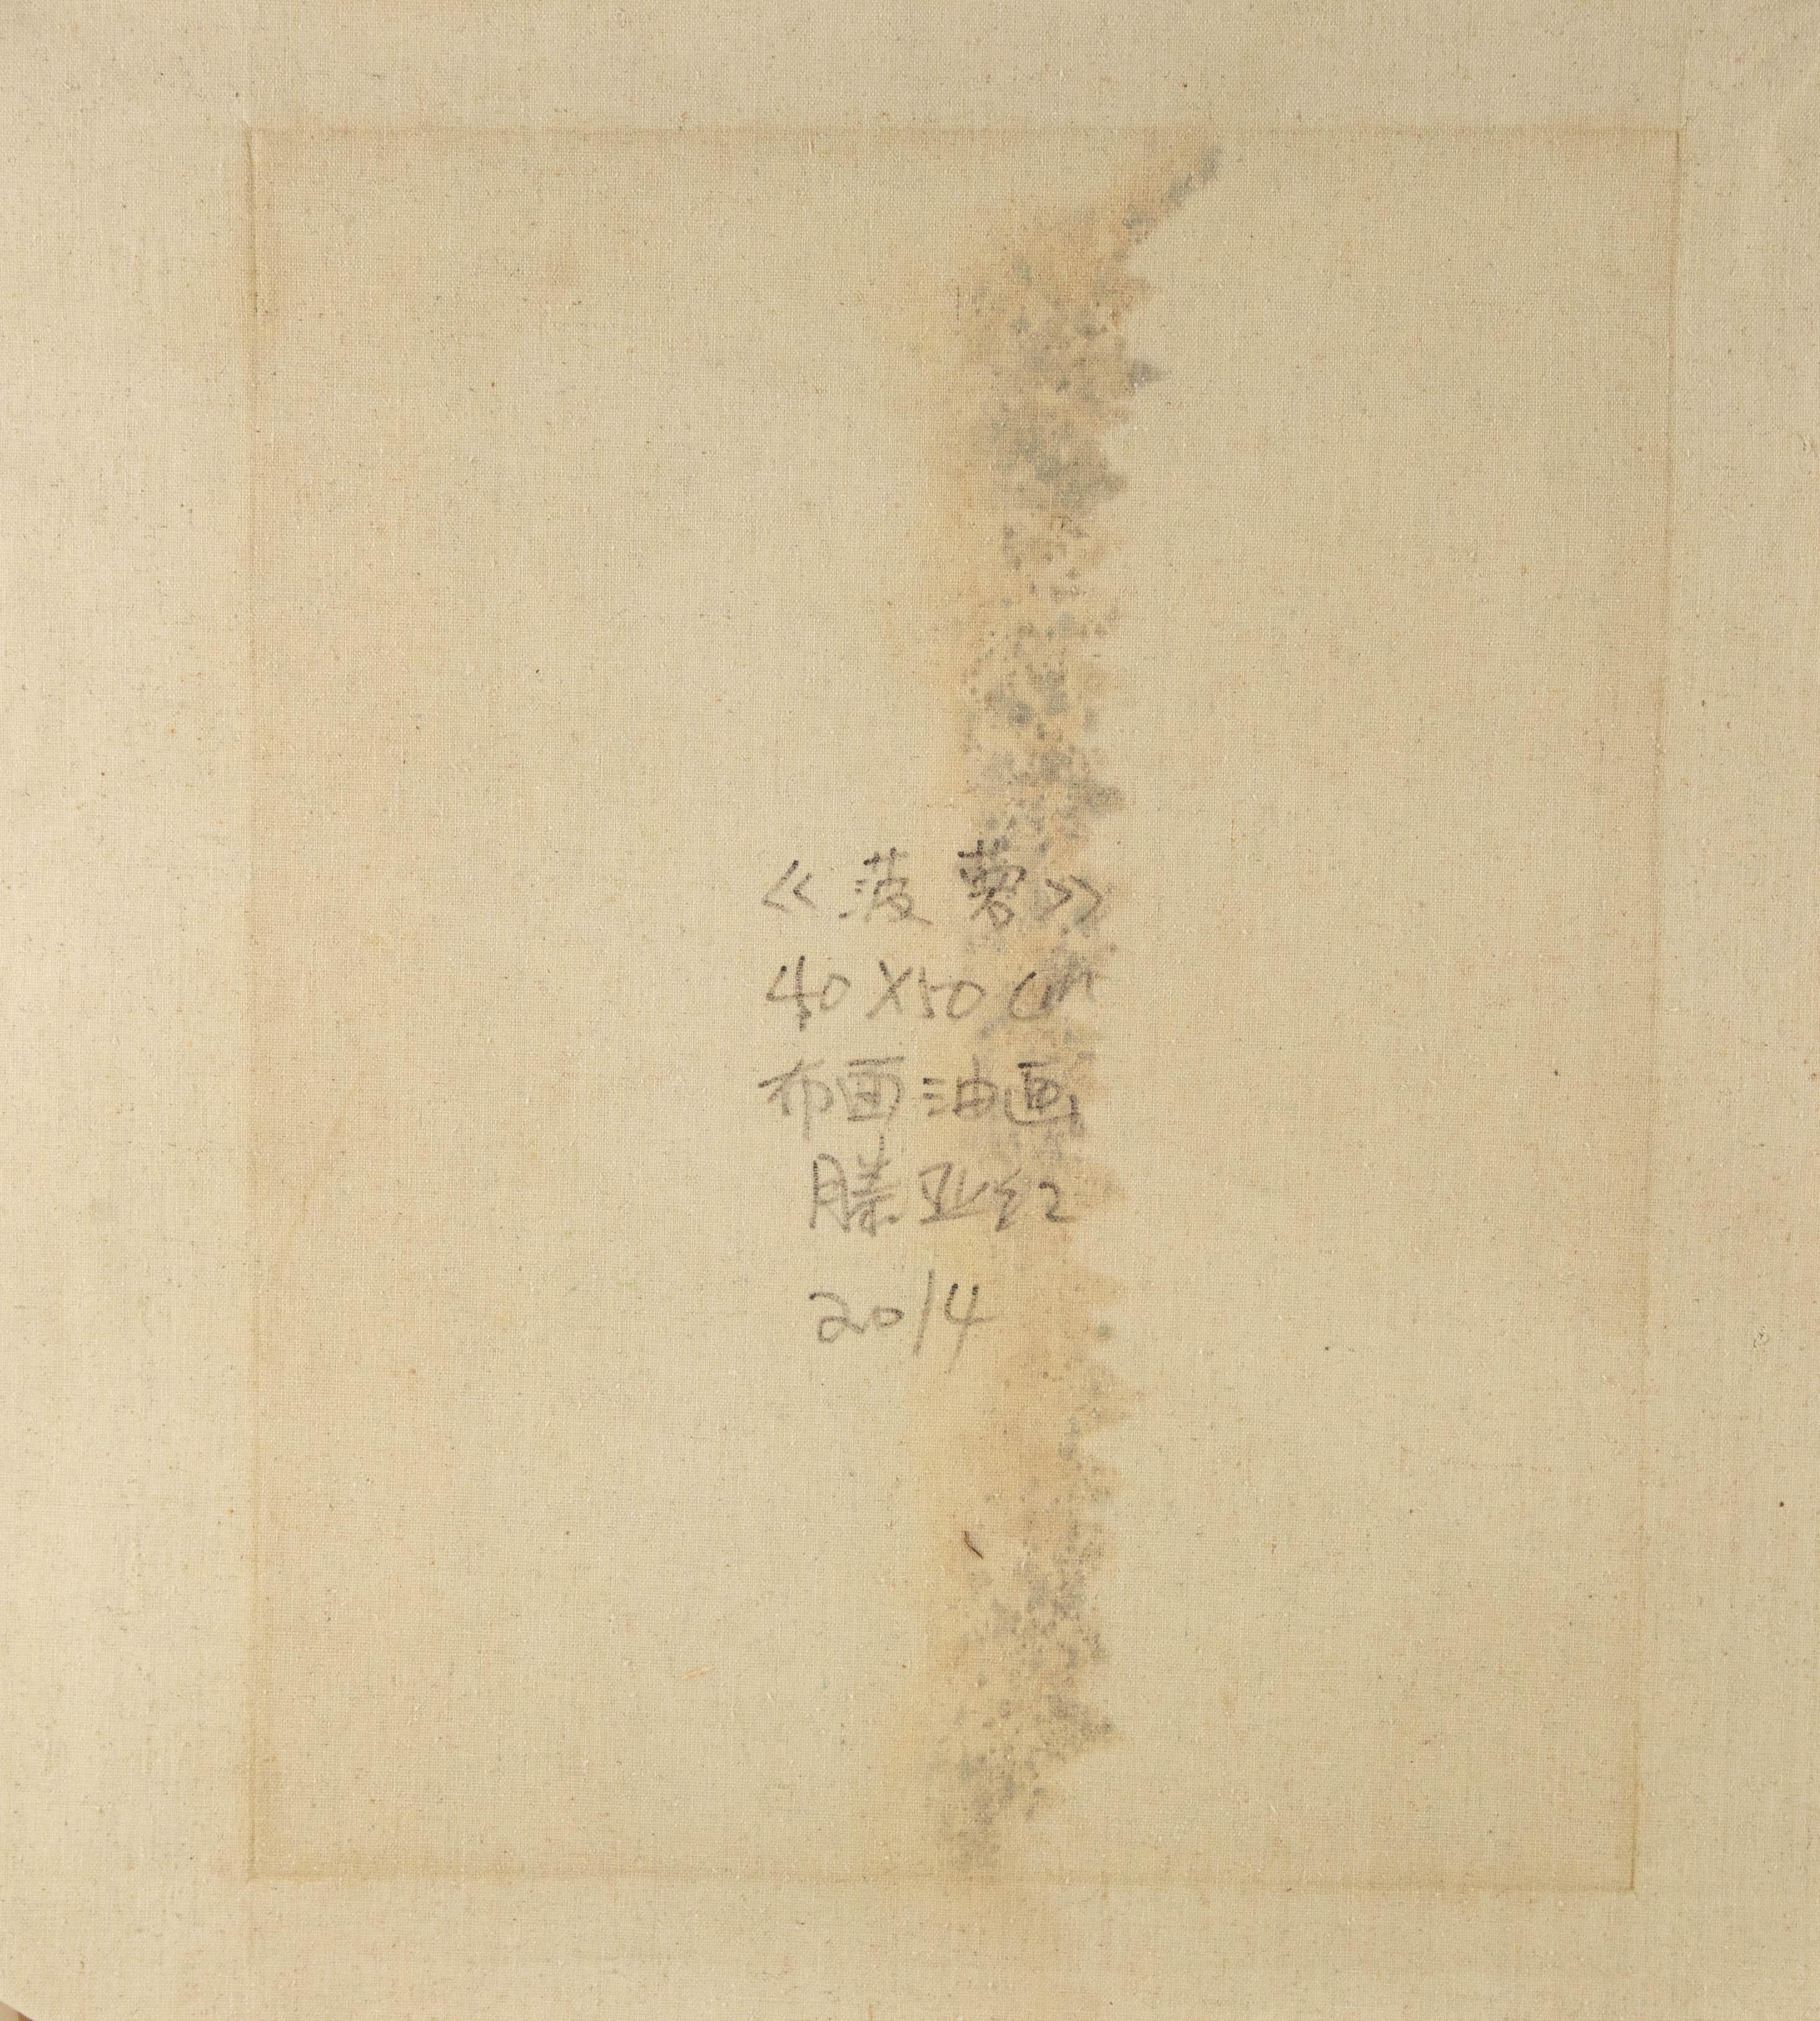 《菠萝》
40X50cm
布面油画
滕亚红
2014